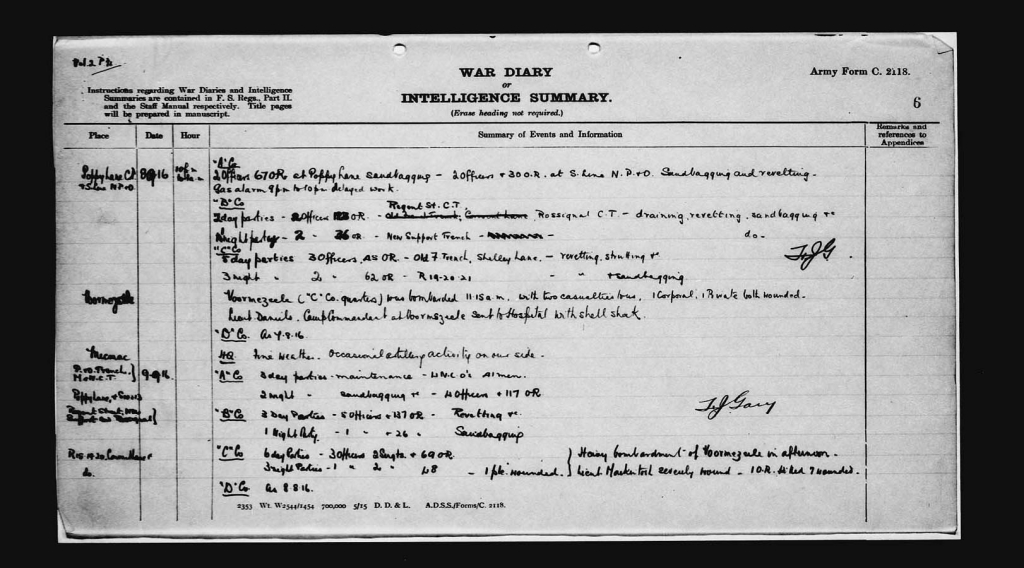 Vol. 2. P
WAR DIARY
or
INTELLIGENCE SUMMARY.
(Erase heading not required.)
Army Form C. 2118.
6
Instructions regarding War Diaries and Intelligence
Summaries are contained in F. S. Regs., Part II.
and the Staff Manual respectively. Title pages
will be prepared in manuscript.
Place Date Hour Summary of Events and Information Remarks and references to Appendices
"A" Co
Poppy Lane C.T. 16 2 Officers 67 O.R. at Poppy Lane sandbagging - 2 Officers + 30 O.R. at S. Line N. P. + O. Sandbagging and revetting.
+ S Line N.P.+O. Gas alarm 9pm to 10pm delayed work.
"B" Co
Regent St. C.T.
2 day parties - Officers O.R. - Rossignal C.T. - draining, revetting, sandbagging etc
night - 2 " 36 O.R. - New Support Trench - do -
"C" Co
day parties 3 Officers, 45 O.R. - Old Trench, Shelley Lane. - revetting, strutting etc
3 night " 2 " 62 O.R. - R 19-20-21 - " " + sandbagging
Voormezeele Voormezeele ("C" Co. quarters) was bombarded 11.15 a.m. with two casualties to us, 1 Corporal, 1 Private both wounded.
Lieut Daniels, Camp Commandant at Voormezeele sent to Hospital with shell shock.
"D" Co. As 7.8.16.
Micmac HQ Fine Weather. Occasional artillery activity on our side -
P. + O. Trench. 9 16 "A" Co 3 day parties - maintenance - 4 N.C.O's 41 men.
C.T.
Poppy Lane, + 2 night " sandbagging etc - 4 Officers + 117 O.R.
Regent Street, New "B" Co 3 Day Parties - 5 Officers + 137 O.R. - Revetting etc.
Support 1 Night Party - 1 " + 26 " Sandbagging
R 18.19.20 "C" Co 6 day Parties - 3 Officers 2 Sergts + 69 O.R. Heavy bombardment of Voormezeele in afternoon.
do. 3 night Parties - 1 " 2 " 48 - 1 pte wounded. Lieut Mackintosh severely wound - 1 O.R. killed 7 wounded.
"D" Co As 8.8.16.
2353 Wt. W2544/1454 700,000 5/15 D. D. & L. A.D.S.S./Forms/C. 2118.